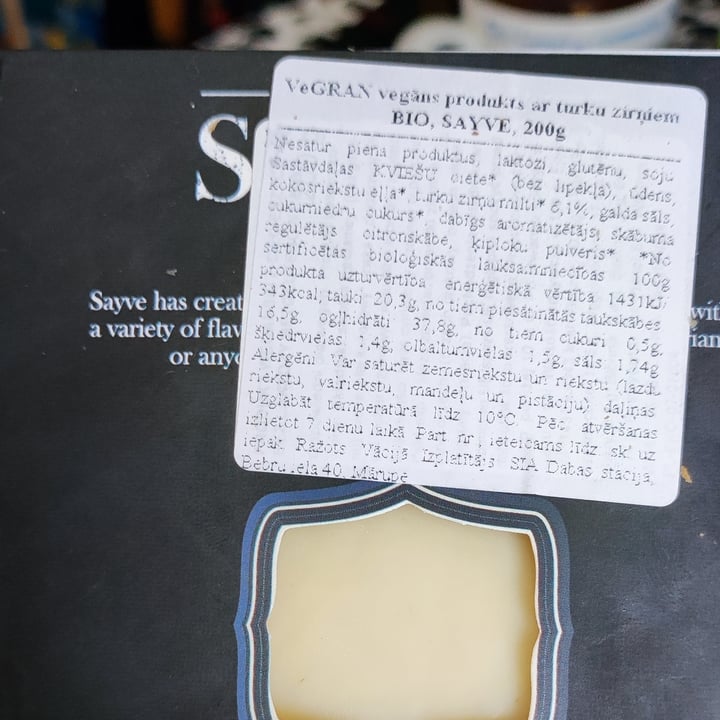 VeGRAN vegāns produkts ar turku zirņiem
BIO, SAYVE, 200g
Nesatur piena produktus, laktozi, glutēnu, soju
Sastāvdaļas KVIEŠU ciete* (bez lipekļa), ūdens,
kokosriekstu eļļa*, turku zirņu milti* 6,1%, galda sāls,
cukurniedru cukurs*, dabīgs aromatizētājs, skābuma
regulētājs citronskābe, ķiploku pulveris* *No
sertificētas bioloģiskās lauksaimniecības 100g
produkta uzturvērtība enerģētiskā vērtība 1431kJ/
343kcal; tauki 20,3g, no tiem piesātinātās taukskābes
16,5g, ogļhidrāti 37,8g, no tiem cukuri 0,5g,
šķiedrvielas 1,4g, olbaltumvielas 1,5g, sāls 1,74g
Alergēni Var saturēt zemesriekstu un riekstu (lazdu
riekstu, valriekstu, mandeļu un pistāciju) daļiņas
Uzglabāt temperatūrā līdz 10°C. Pēc atvēršanas
izlietot 7 dienu laikā Part nr, ieteicams līdz sk uz
iepak Ražots Vācijā Izplatītājs SIA Dabas stacija,
Bebru iela 40, Mārupe
S
Sayve has creat
a variety of flav
or any